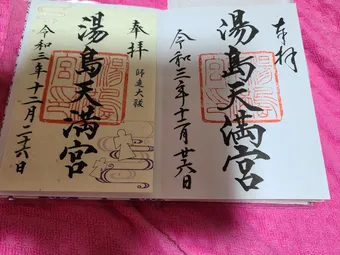 奉拝
湯島天満宮
令和三年十二月廿六日
奉拝
師走大祓
湯島天満宮
令和三年十二月二十六日